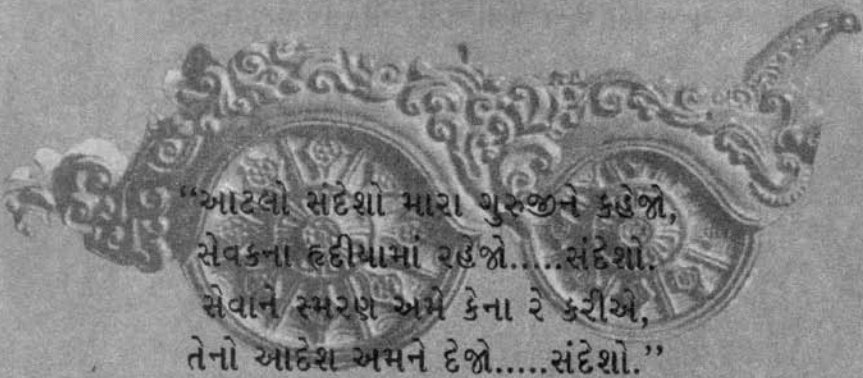 “આટલો સંદેશો મારા ગુરુજીને કહેજો,
સેવકના હૃદીયામાં રહેજો.....સંદેશો.
સેવાને સ્મરણ અમે કેના રે કરીએ,
તેનો આદેશ અમને દેજો.....સંદેશો.”